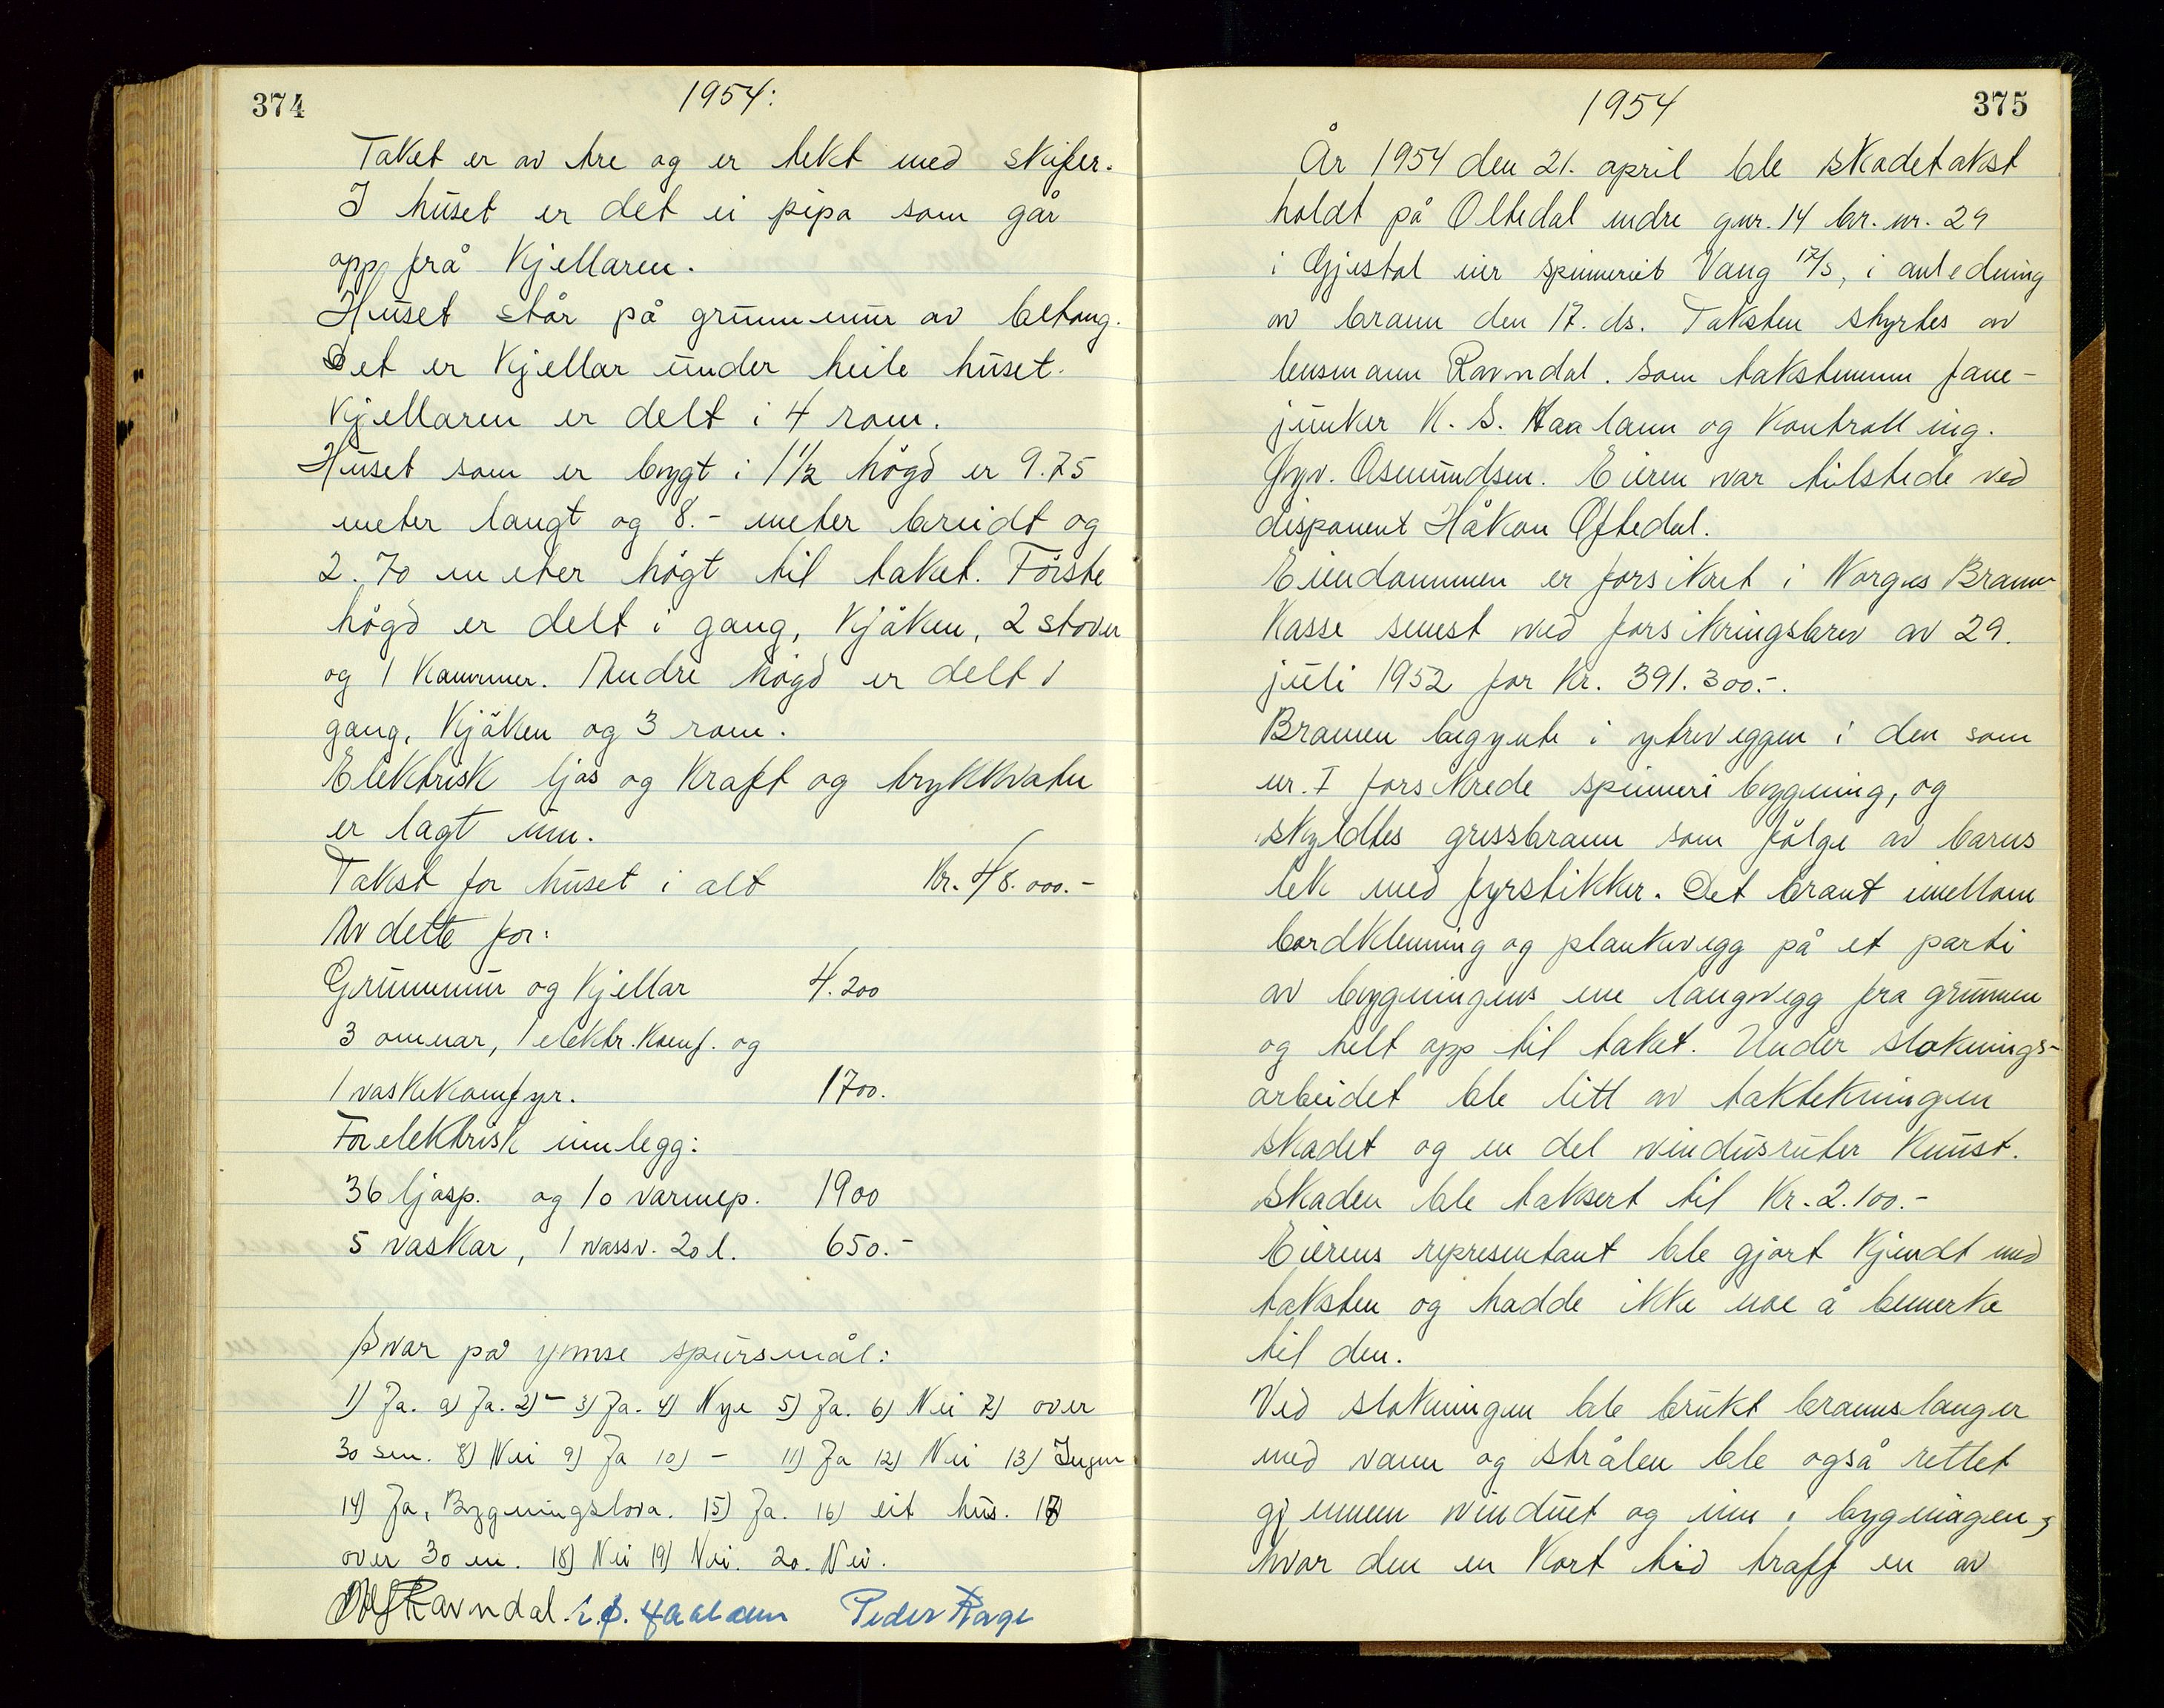 374
1954:
Taket er av tre og er tekt med skifer.
I huset er det ei pipa som går
opp frå kjellaren.
Huset står på grunnmur av betong.
Det er kjellar under heile huset.
Kjellaren er delt i 4 rom.
Huset som er bygt i 1 1/2 högd er 9.75
meter langt og 8.- meter breidt og
2.70 meter högt til taket. Förste
högd er delt i gang, kjöken, 2 stover
og 1 kammer. Andre högd er delt i
gang, kjöken og 3 rom.
Elektrisk ljos og kraft og trykkvatn
er lagt inn.
Takst for huset i alt Kr. 48.000.-
Av dette for:
Grunnmur og kjellar 4.200
3 omnar, 1 elektr. komf. og
1 vaskekomfyr. 1700.
For elektrisk innlegg:
36 ljosp. og 10 varmep. 1900
5 vaskar, 1 vassv. 20 l. 650.-
Svar på ymse spursmål:
1) Ja. a) Ja. 2) - 3) Ja. 4) Nye 5) Ja. 6) Nei 7) over
30 sm. 8) Nei 9) Ja 10) - 11) Ja 12) Nei 13) Ingen
14) Ja, Bygningslova. 15) Ja. 16) eit hus. 17)
over 30 m. 18) Nei 19) Nei. 20. Nei.
Ravndal. Haaland Peder Rage
1954
375
År 1954 den 21. april ble skadetakst
holdt på Oltedal indre gnr. 14 br. nr. 29
i Gjestal eier spinneriet Vang A/S, i anledning
av brann den 17. ds. Taksten styrtes av
lensmann Ravndal. Som takstmenn fane-
junker K. S. Haaland og kontroll ing.
Gyv. Asmundsen. Eieren var tilstede ved
disponent Håkon Oftedal.
Eiendommen er forsikret i Norges Brann-
kasse senest med forsikringsbrev av 29.
juli 1952 for kr. 391.300.-.
Brannen begynte i ytreveggen i den som
nr. I forsikrede spinneri bygning, og
skyldtes gressbrann som fölge av barns
lek med fyrstikker. Det brant imellom
bordkledning og plankevegg på et parti
av bygningens ene langvegg fra grunnen
og helt opp til taket. Under sloknings-
arbeidet ble litt av taktekningen
skadet og en del vindusruter knust.
Skaden ble taksert til Kr. 2.100.-
Eierens representant ble gjort kjendt med
taksten og hadde ikke noe å bemerke
til den.
Ved slokningen ble brukt brannslanger
med vann og strålen ble også rettet
gjennem vinduet og inn i bygningen,
hvor den en kort tid traff en av